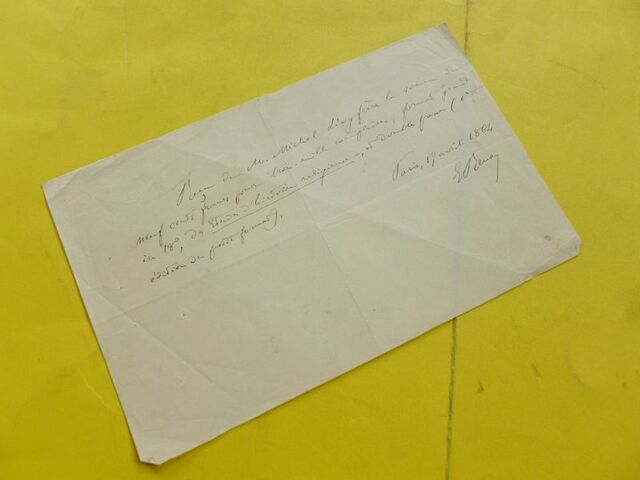 Reçu de M. Michel Lévy frères la somme de
neuf cents francs pour trois mille exemplaires, format grand
in 18º, de Études d'histoire religieuse, et double passe (6e
édition du petit format).
Paris, 17 avril 1864
E Renan